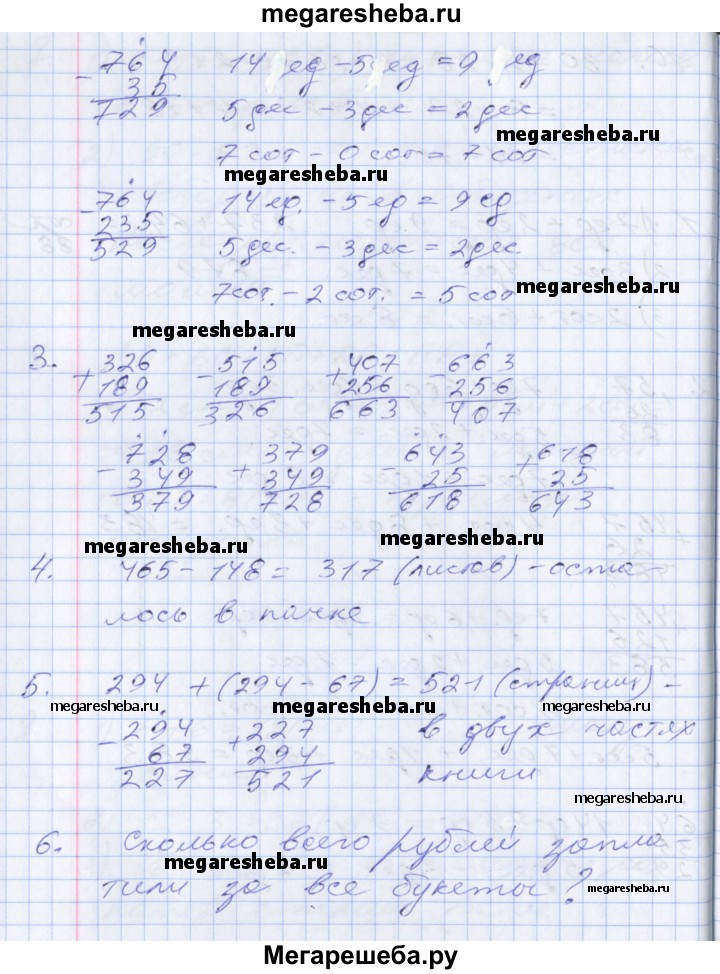 megaresheba.ru
- 764 14 ед - 5 ед = 9 ед
35
729 5 дес - 3 дес = 2 дес
megaresheba.ru
7 сот - 0 сот = 7 сот
megaresheba.ru
- 764 14 ед. - 5 ед = 9 ед
235
529 5 дес. - 3 дес = 2 дес.
megaresheba.ru
7 сот. - 2 сот. = 5 сот
megaresheba.ru
3. + 326 - 515 + 407 - 663
189 189 256 256
515 326 663 407
- 728 + 379 - 643 + 618
349 349 25 25
379 728 618 643
megaresheba.ru megaresheba.ru
4. 465 - 148 = 317 (листов) - оста-
лось в пачке
5. 294 + (294 - 67) = 521 (страниц) -
megaresheba.ru megaresheba.ru megaresheba.ru
- 294 + 227 в двух частях
67 294
227 521 книги
megaresheba.ru
6. Сколько всего рублей запла-
megaresheba.ru
тили за все букеты?
megaresheba.ru
Мегарешеба.ру